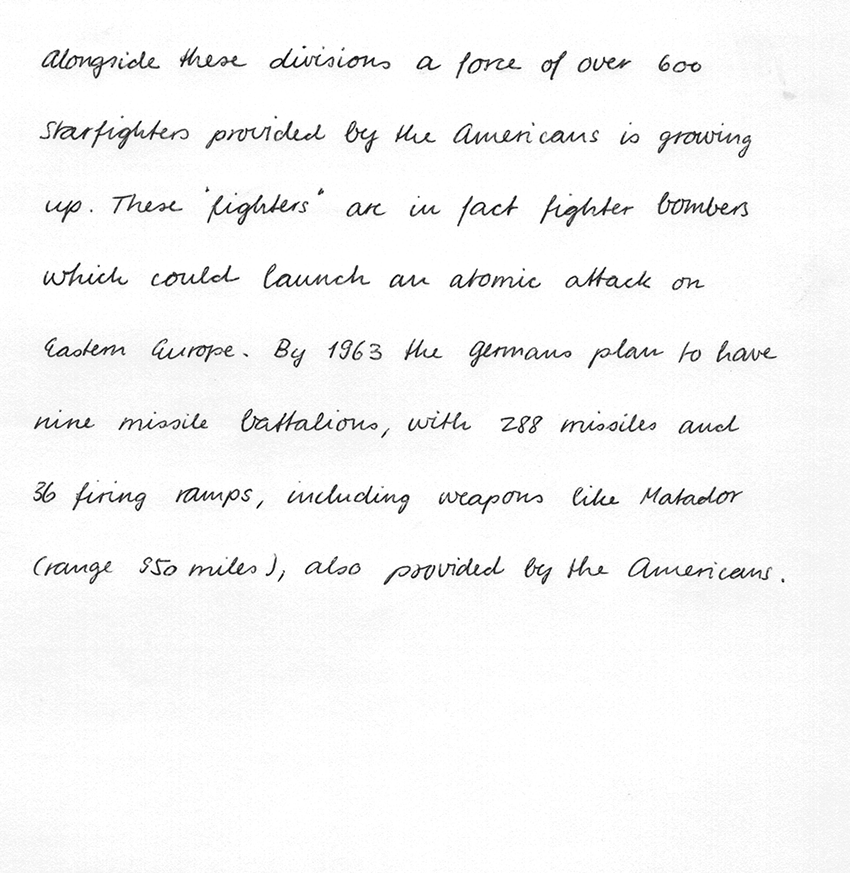 Alongside these divisions a force of over 600
Starfighters provided by the Americans is growing
up. These "fighters" are in fact fighter bombers
which could launch an atomic attack on
Eastern Europe. By 1963 the Germans plan to have
nine missile battalions, with 288 missiles and
36 firing ramps, including weapons like Matador
(range 550 miles), also provided by the Americans.